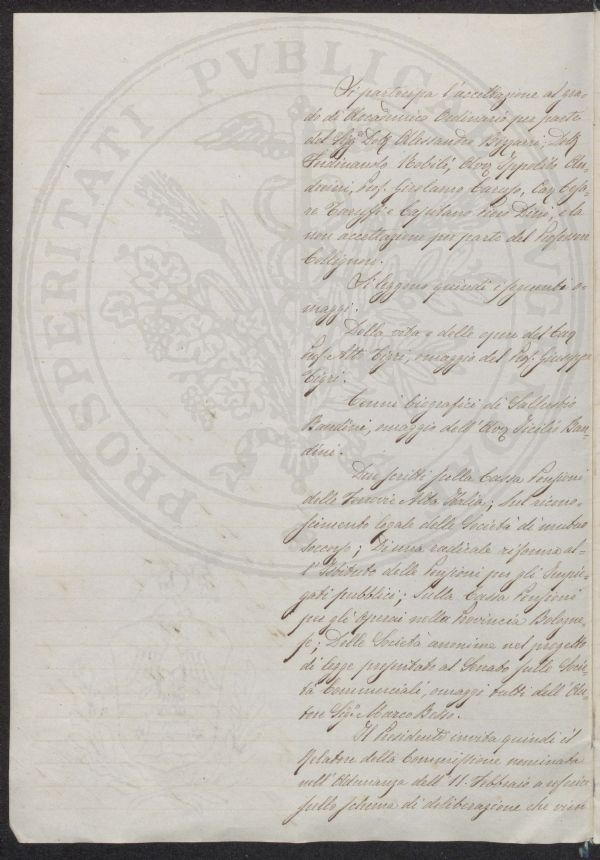 PROSPERITATI PVBLICAE AVG
Si partecipa l'accettazione al gra-
do di Accademico Ordinario per parte
del Sigr. Dott. Alessandro Bizzarri, Dott.
Ferdinando Nobili, Avv. Ippolito Lu-
devini, Prof. Girolamo Caruso, Cav. Cesa-
re Taruffi e Capitano Piero Dini, e la
non accettazione per parte del Professore
Collignon.
Si leggono quindi i seguenti o-
maggi:
Della vita e delle opere del Cav.
Prof. Atto Tigri, omaggio del Prof. Giuseppe
Tigri.
Cenni biografici di Sallustio
Bandini, omaggio dell'Avv. Icilio Ban-
dini.
Due scritti sulla Cassa Pensioni
delle Ferrovie Alta Italia; Sul ricono-
scimento legale delle Società di mutuo
soccorso; Di una radicale riforma al-
l'Istituto delle Pensioni per gli Impie-
gati pubblici; Sulla Cassa Pensioni
per gli Operai nella Provincia Bologne-
se; Delle Società anonime nel progetto
di legge presentato al Senato sulle Socie-
tà Commerciali, omaggi tutti dell'Au-
tore Sigr. Marco Besso.
Il Presidente invita quindi il
Relatore della Commissione nominata
nell'Adunanza dell'11 Febbraio a riferire
sullo schema di deliberazione che vien